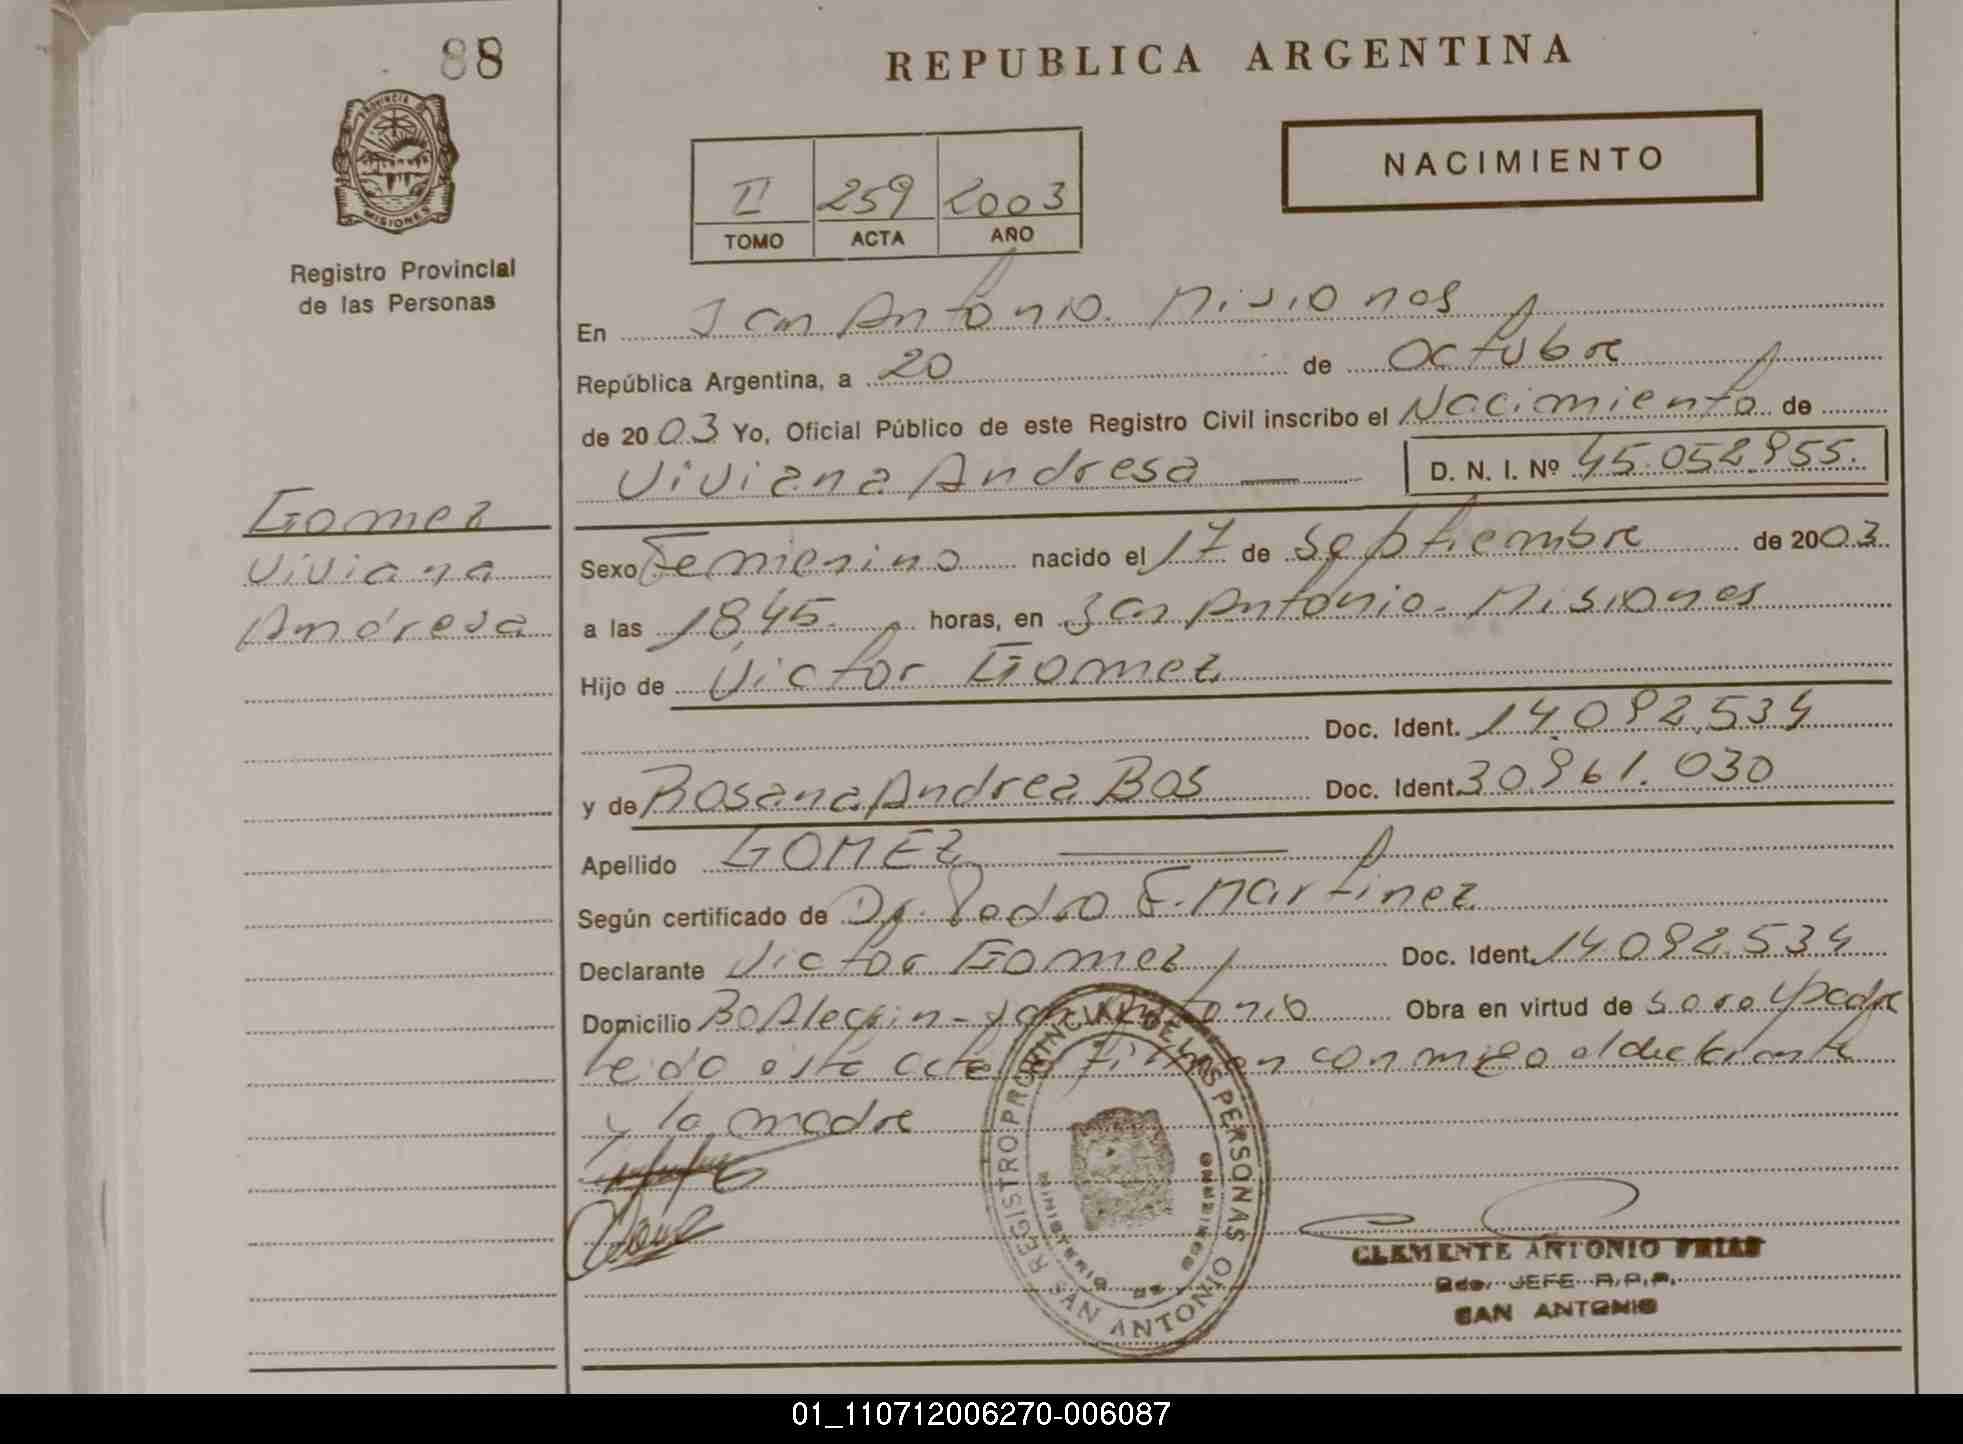 88
REPUBLICA ARGENTINA
NACIMIENTO
PROVINCIA DE
MISIONES
II 259 2003
TOMO ACTA AÑO
Registro Provincial
de las Personas
En San Antonio. Misiones
República Argentina, a 20 de Octubre
de 2003 Yo, Oficial Público de este Registro Civil inscribo el Nacimiento de
Viviana Andresa D. N. I. Nº 45.052.955.
Gomez
Viviana
Andresa
Sexo Femenino nacido el 17 de Septiembre de 2003
a las 18,45 horas, en San Antonio. Misiones
Hijo de Victor Gomez
Doc. Ident. 14.092.534
y de Rosana Andrea Bos Doc. Ident. 30.961.030
Apellido GOMEZ
Según certificado de Dr. Pedro F. Martinez
Declarante Victor Gomez Doc. Ident. 14.092.534
Domicilio Bo Alegrin - San Antonio Obra en virtud de ser el padre
leido este acta firman conmigo el declarante
y la madre
REGISTRO PROVINCIAL DE LAS PERSONAS
MINISTERIO DE GOBIERNO
SAN ANTONIO
CLEMENTE ANTONIO FRIAS
2do. JEFE R.P.P.
SAN ANTONIO
01_110712006270-006087